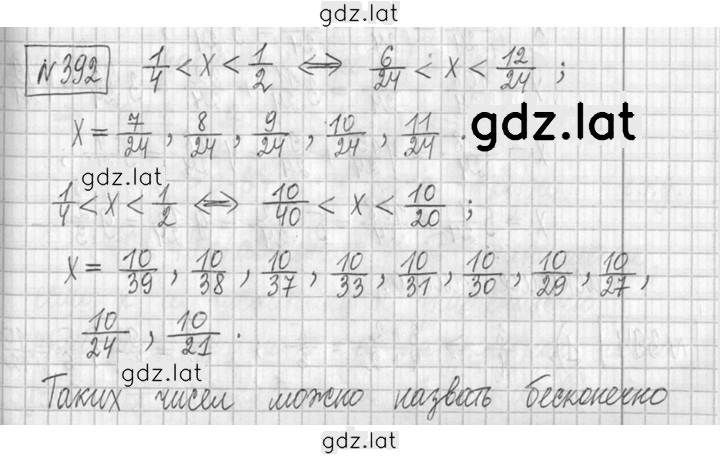 gdz.lat
№392 1/4 < x < 1/2 ⟺ 6/24 < x < 12/24 ;
x = 7/24 , 8/24 , 9/24 , 10/24 , 11/24 . gdz.lat
gdz.lat
1/4 < x < 1/2 ⟺ 10/40 < x < 10/20 ;
x = 10/39 , 10/38 , 10/37 , 10/33 , 10/31 , 10/30 , 10/29 , 10/27 ,
10/24 , 10/21 .
gdz.lat
Таких чисел можно назвать бесконечно
gdz.lat